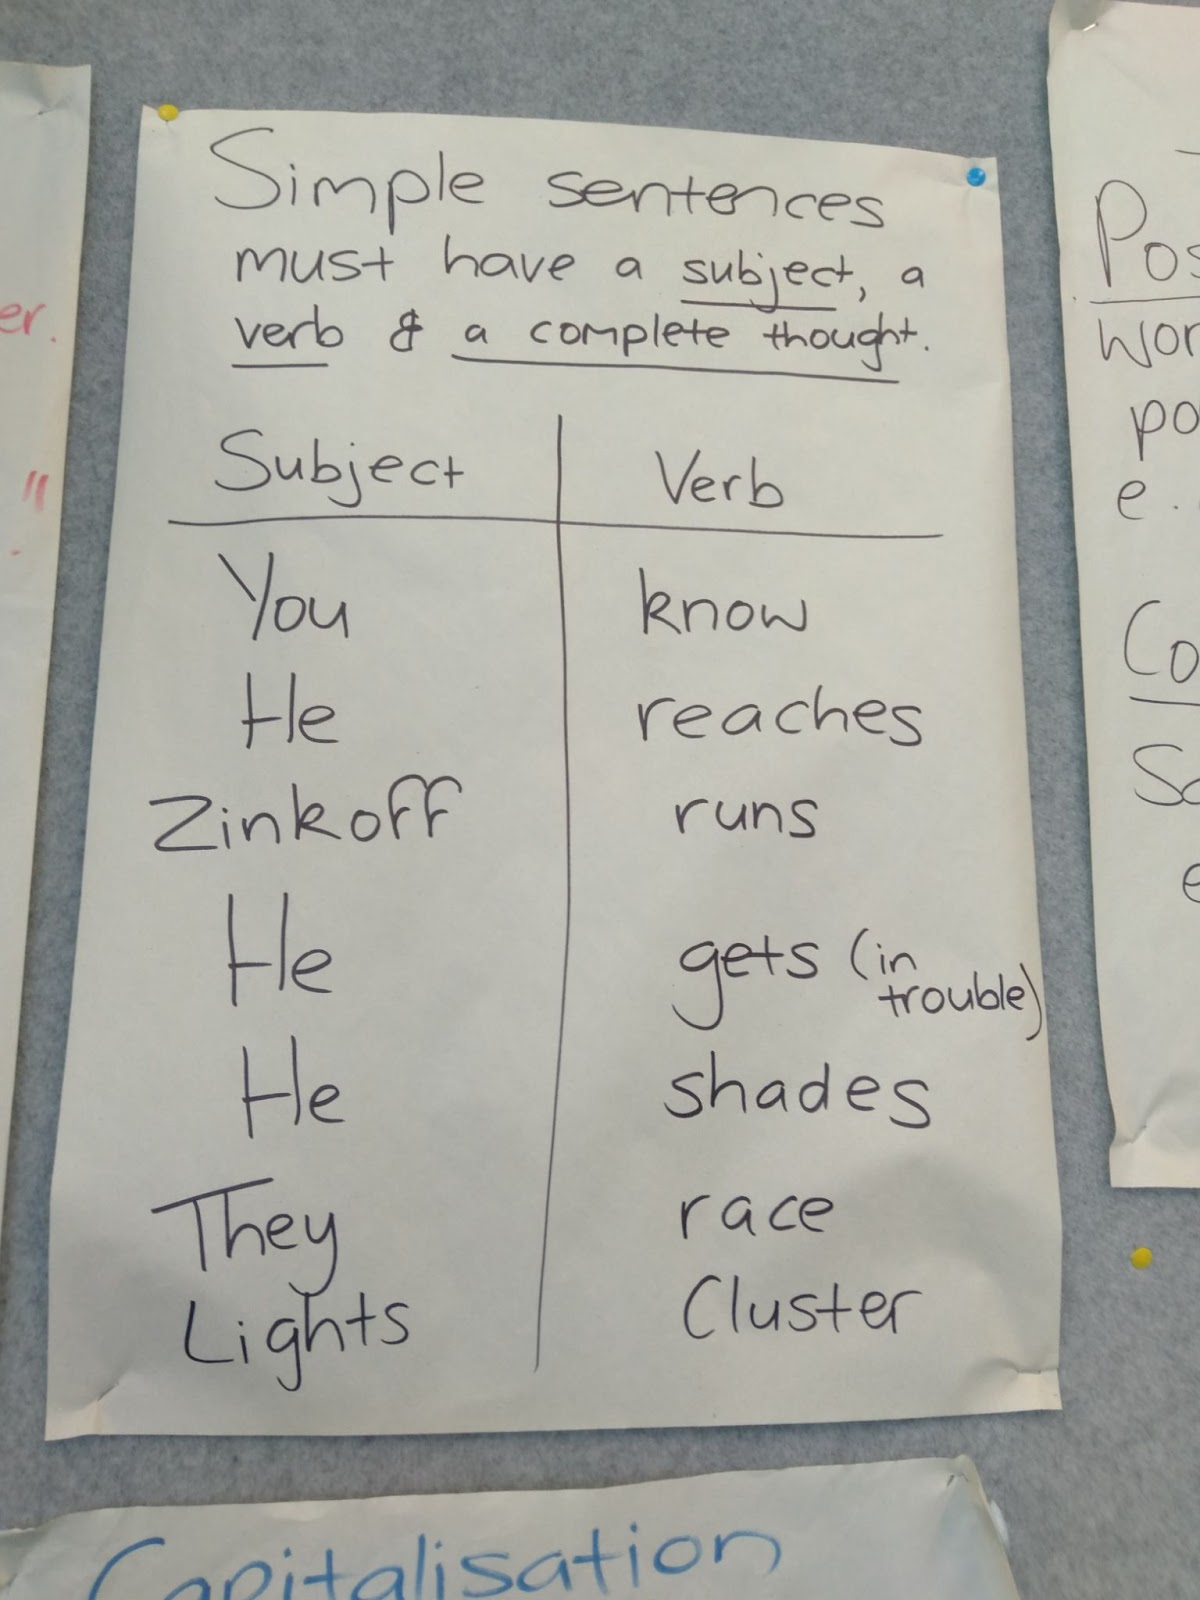 Simple sentences
must have a subject, a
verb & a complete thought.
Subject Verb
You know
He reaches
Zinkoff runs
He gets (in
trouble)
He shades
They race
Lights Cluster
Capitalisation
er.
"
.
Pos
wor
po
e.
Co
Se
e